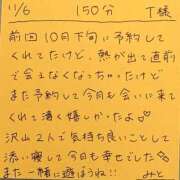 11/6 150分 T様
前回10月下旬に予約して
くれてたけど、熱が出て直前
で会えなくなっちゃったけど
また予約して今月も会いに来て
くれて凄く嬉しかったよ♡
沢山2人で気持ち良いことして
添い寝して今回も幸せでした
また一緒に遊ぼうね!! みと